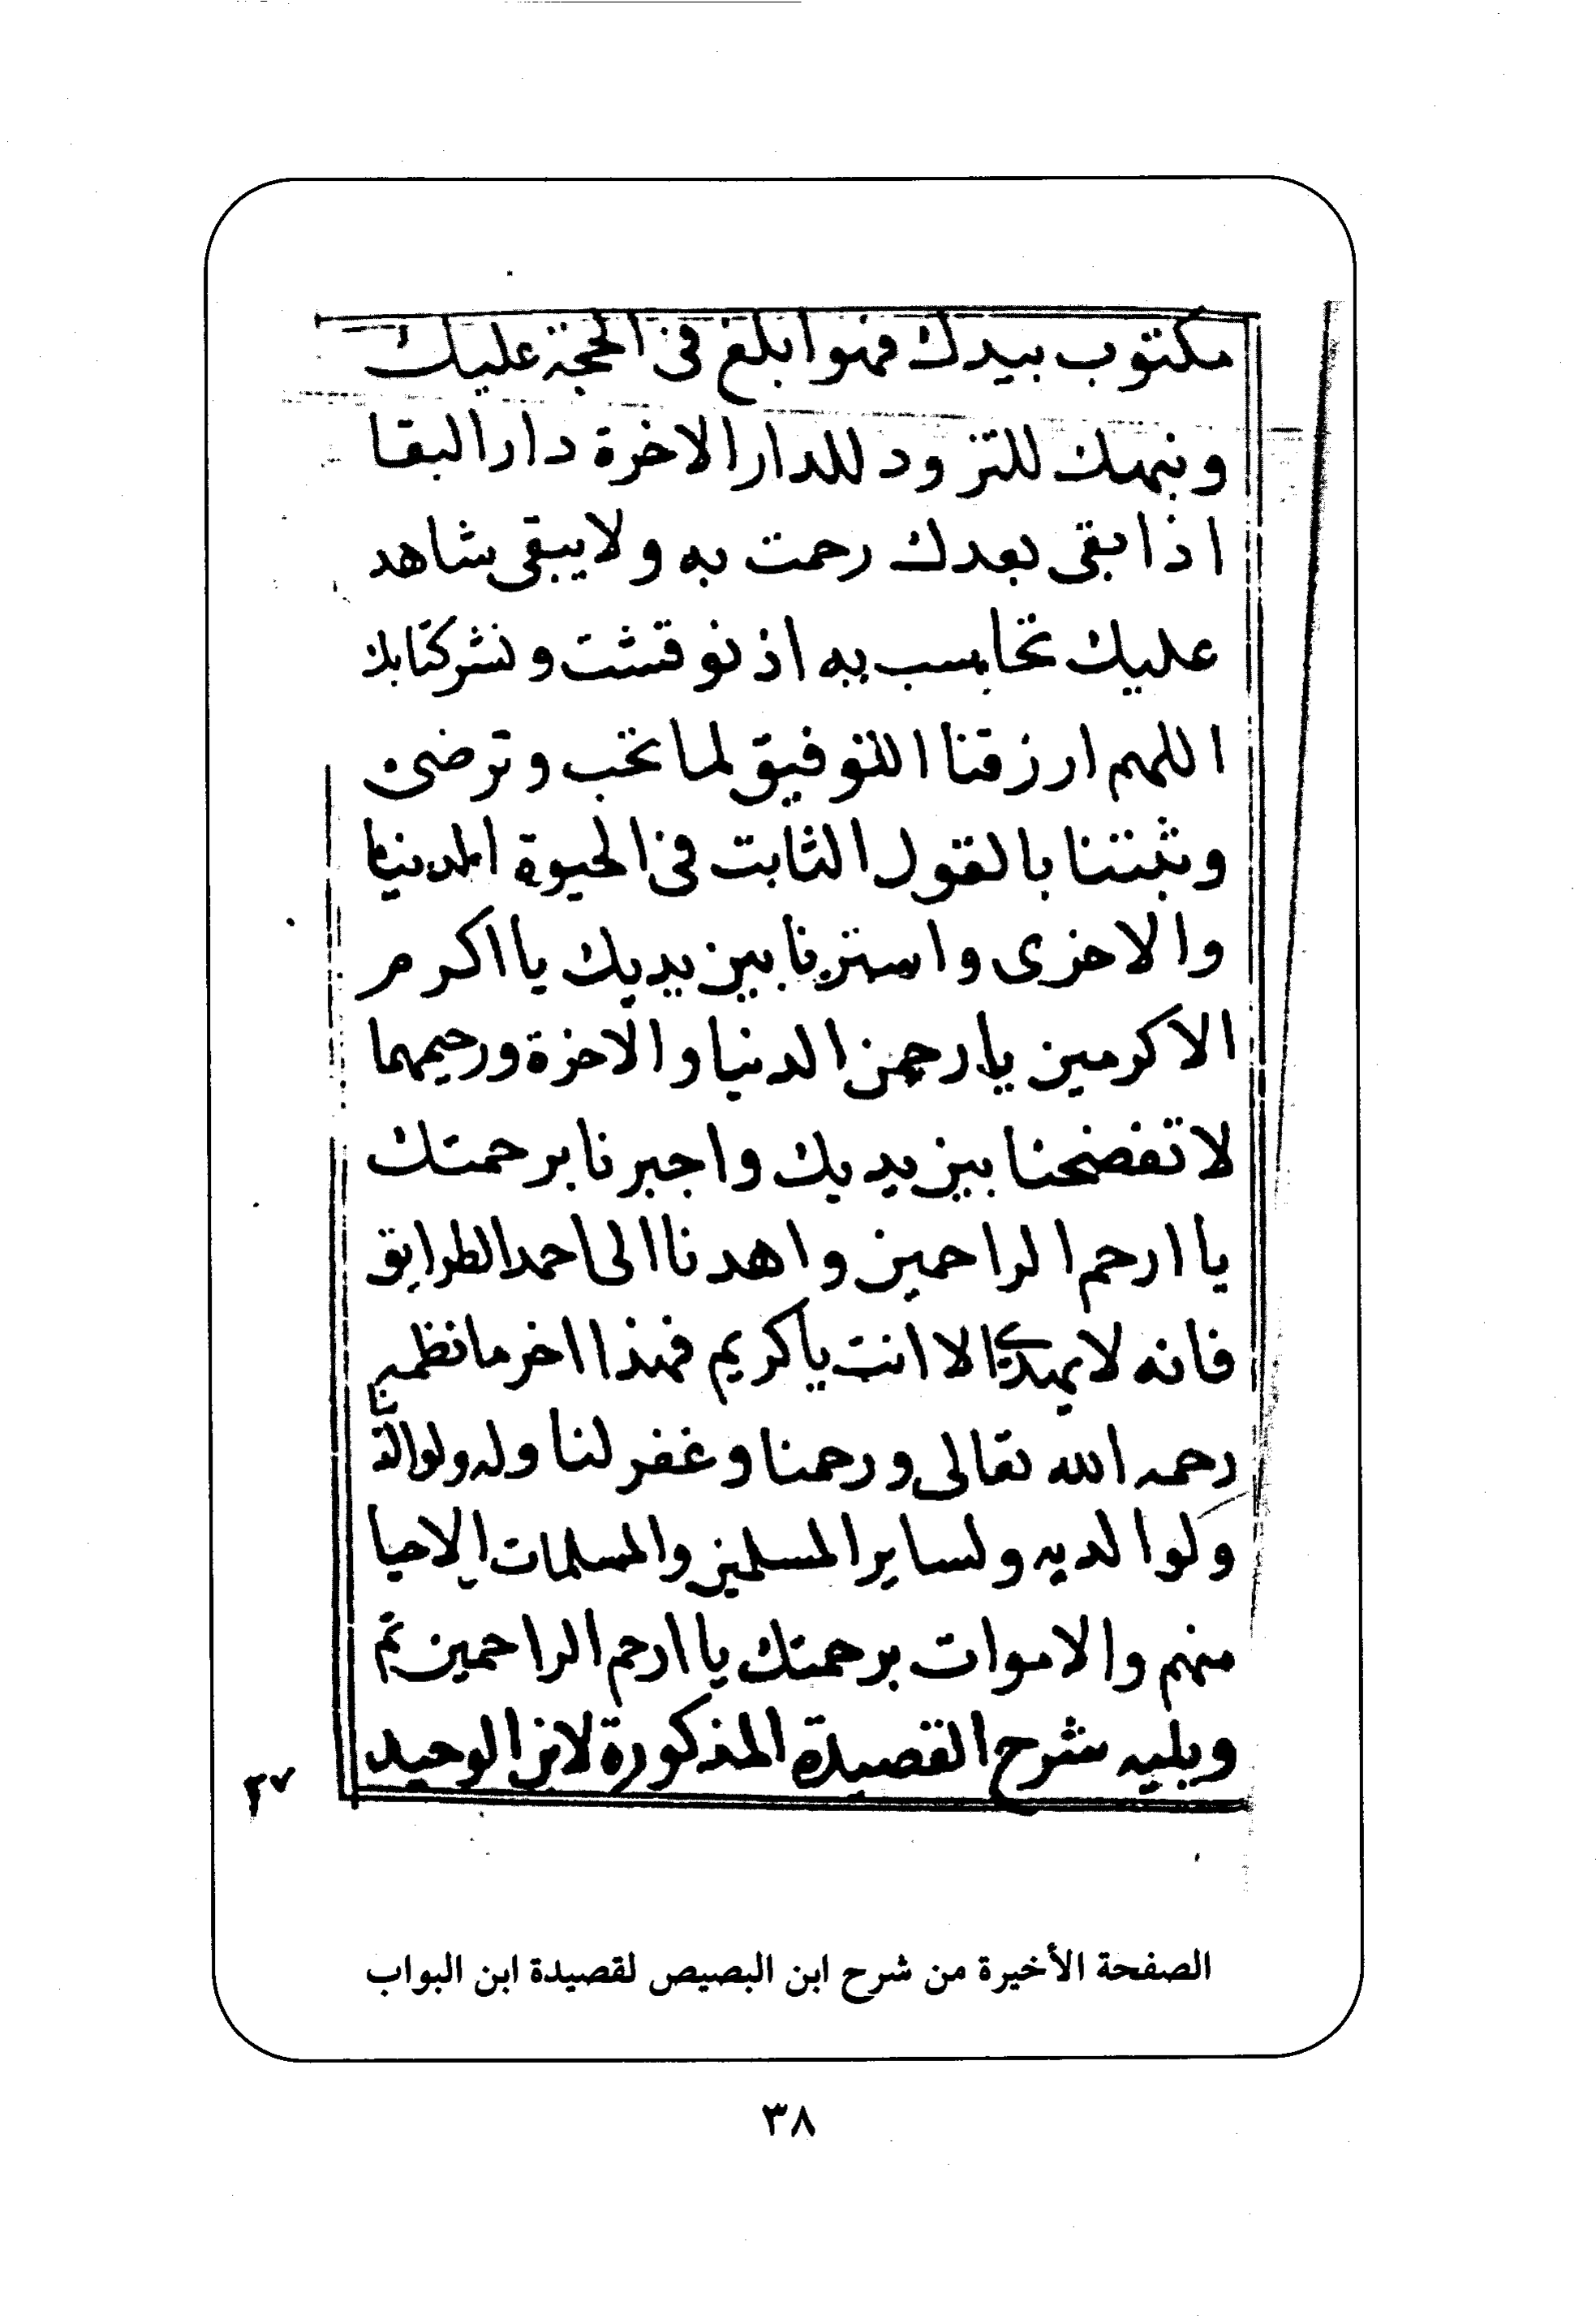 مكتوب بيدك فهو ابلغ فى الحجة عليك
ونبهك للتزود للدار الاخرة دار البقا
اذا بقى بعدك رحمت به ولا يبقى شاهد
عليك تحاسب به اذ نوقشت ونشر كتابك
اللهم ارزقنا التوفيق لما تحب وترضى
وثبتنا بالقول الثابت فى الحيوة الدنيا
والاخرى واسترنا بين يديك يا اكرم
الاكرمين يا رحمن الدنيا والاخرة ورحيمهما
لا تفضحنا بين يديك واجبرنا برحمتك
يا ارحم الراحمين واهدنا الى احمد الطرايق
فانه لا الا انت يا كريم فهذا اخر ما نظمه
رحمه الله تعالى ورحمنا وغفر لنا وله
ولوالديه ولساير المسلمين والمسلمات الاحيا
منهم والاموات برحمتك يا ارحم الراحمين تم
ويليه شرح القصيدة المذكورة لابن الوحيد
٢٧
الصفحة الأخيرة من شرح ابن البصيص لقصيدة ابن البواب
٣٨